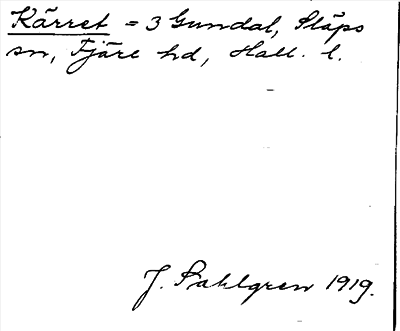 Kärret = 3 Gundal, Släps
sn, Fjäre hd, Hall. l.
J. Sahlgren 1919.